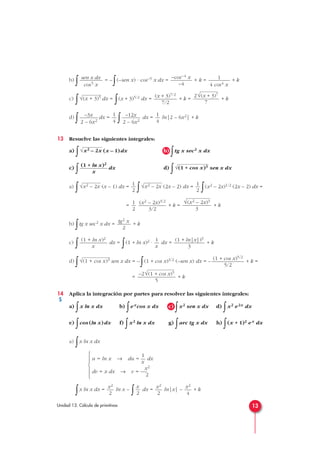 b) ∫ sen x dx / cos⁵ x = –∫(–sen x) · cos⁻⁵ x dx = –cos⁻⁴ x / –4 + k = –1 / 4 cos⁴ x + k
c) ∫ √(x + 3)⁵ dx = ∫(x + 3)^5/2 dx = (x + 3)^7/2 / 7/2 + k = 2√(x + 3)⁷ / 7 + k
d) ∫ –3x / 2 – 6x² dx = 1/4 ∫ –12x / 2 – 6x² dx = 1/4 ln|2 – 6x²| + k
13 Resuelve las siguientes integrales:
a) ∫ √x² – 2x (x – 1) dx b) ∫ tg x sec² x dx
c) ∫ (1 + ln x)² / x dx d) ∫ √(1 + cos x)³ sen x dx
a) ∫ √x² – 2x (x – 1) dx = 1/2 ∫ √x² – 2x (2x – 2) dx = 1/2 ∫(x² – 2x)^1/2 (2x – 2) dx =
= 1/2 (x² – 2x)^3/2 / 3/2 + k = √(x² – 2x)³ / 3 + k
b) ∫ tg x sec² x dx = tg² x / 2 + k
c) ∫ (1 + ln x)² / x dx = ∫(1 + ln x)² · 1/x dx = (1 + ln|x|)³ / 3 + k
d) ∫ √(1 + cos x)³ sen x dx = –∫(1 + cos x)^3/2 (–sen x) dx = – (1 + cos x)^5/2 / 5/2 + k =
= –2√(1 + cos x)⁵ / 5 + k
14 Aplica la integración por partes para resolver las siguientes integrales:
S
a) ∫ x ln x dx b) ∫ eˣ cos x dx c) ∫ x² sen x dx d) ∫ x² e²ˣ dx
e) ∫ cos (ln x) dx f) ∫ x² ln x dx g) ∫ arc tg x dx h) ∫ (x + 1)² eˣ dx
a) ∫ x ln x dx
u = ln x → du = 1/x dx
dv = x dx → v = x²/2
∫ x ln x dx = x²/2 ln x – ∫ x/2 dx = x²/2 ln|x| – x²/4 + k
Unidad 12. Cálculo de primitivas
13